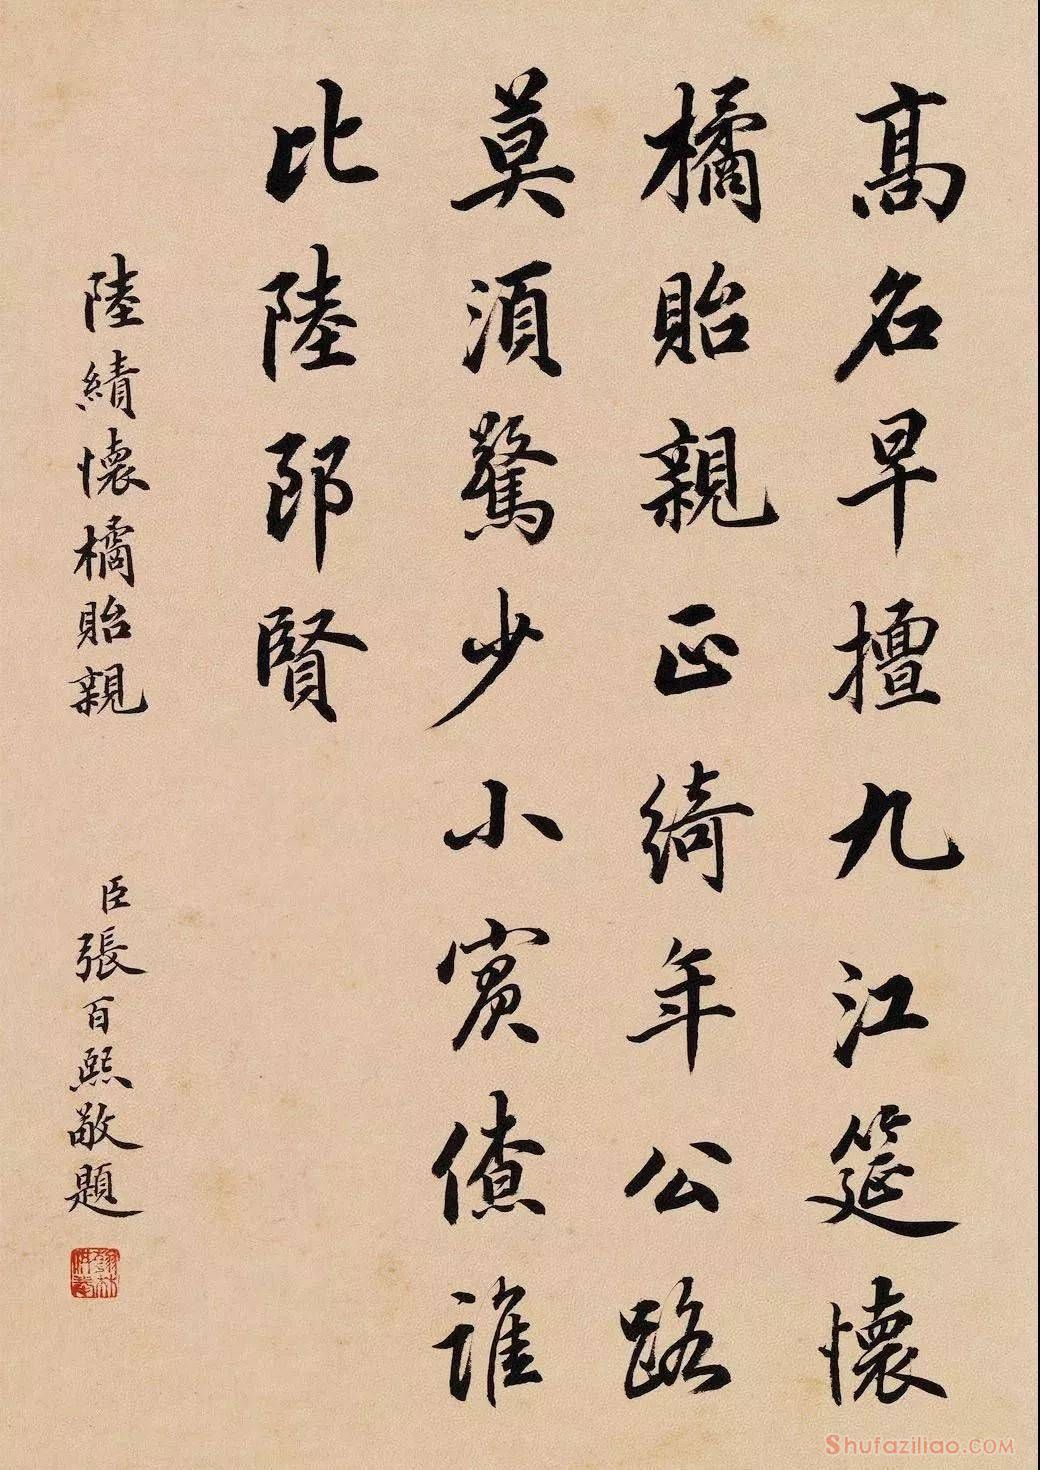 高名早擅九江筵懷
橘貽親正綺年公路
莫須驚少小賓僚誰
比陸郎賢
陸績懷橘貽親
臣張百熙敬題
Shufaziliao.COM